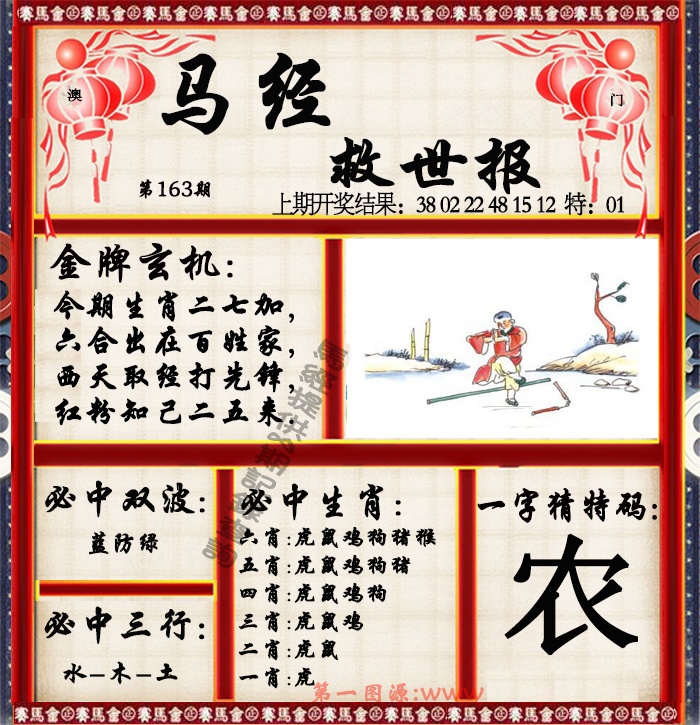 賽馬會正賽馬會正賽馬會正賽馬會正
澳
门
马经
救世报
第163期
上期开奖结果：38 02 22 48 15 12 特：01
金牌玄机：
今期生肖二七加，
六合出在百姓家，
西天取经打先锋，
红粉知己二五来．
必中双波：
蓝防绿
必中三行：
水–木–土
必中生肖：
六肖:虎鼠鸡狗猪猴
五肖:虎鼠鸡狗猪
四肖:虎鼠鸡狗
三肖:虎鼠鸡
二肖:虎鼠
一肖:虎
一字猜特码：
农
第一图源:www